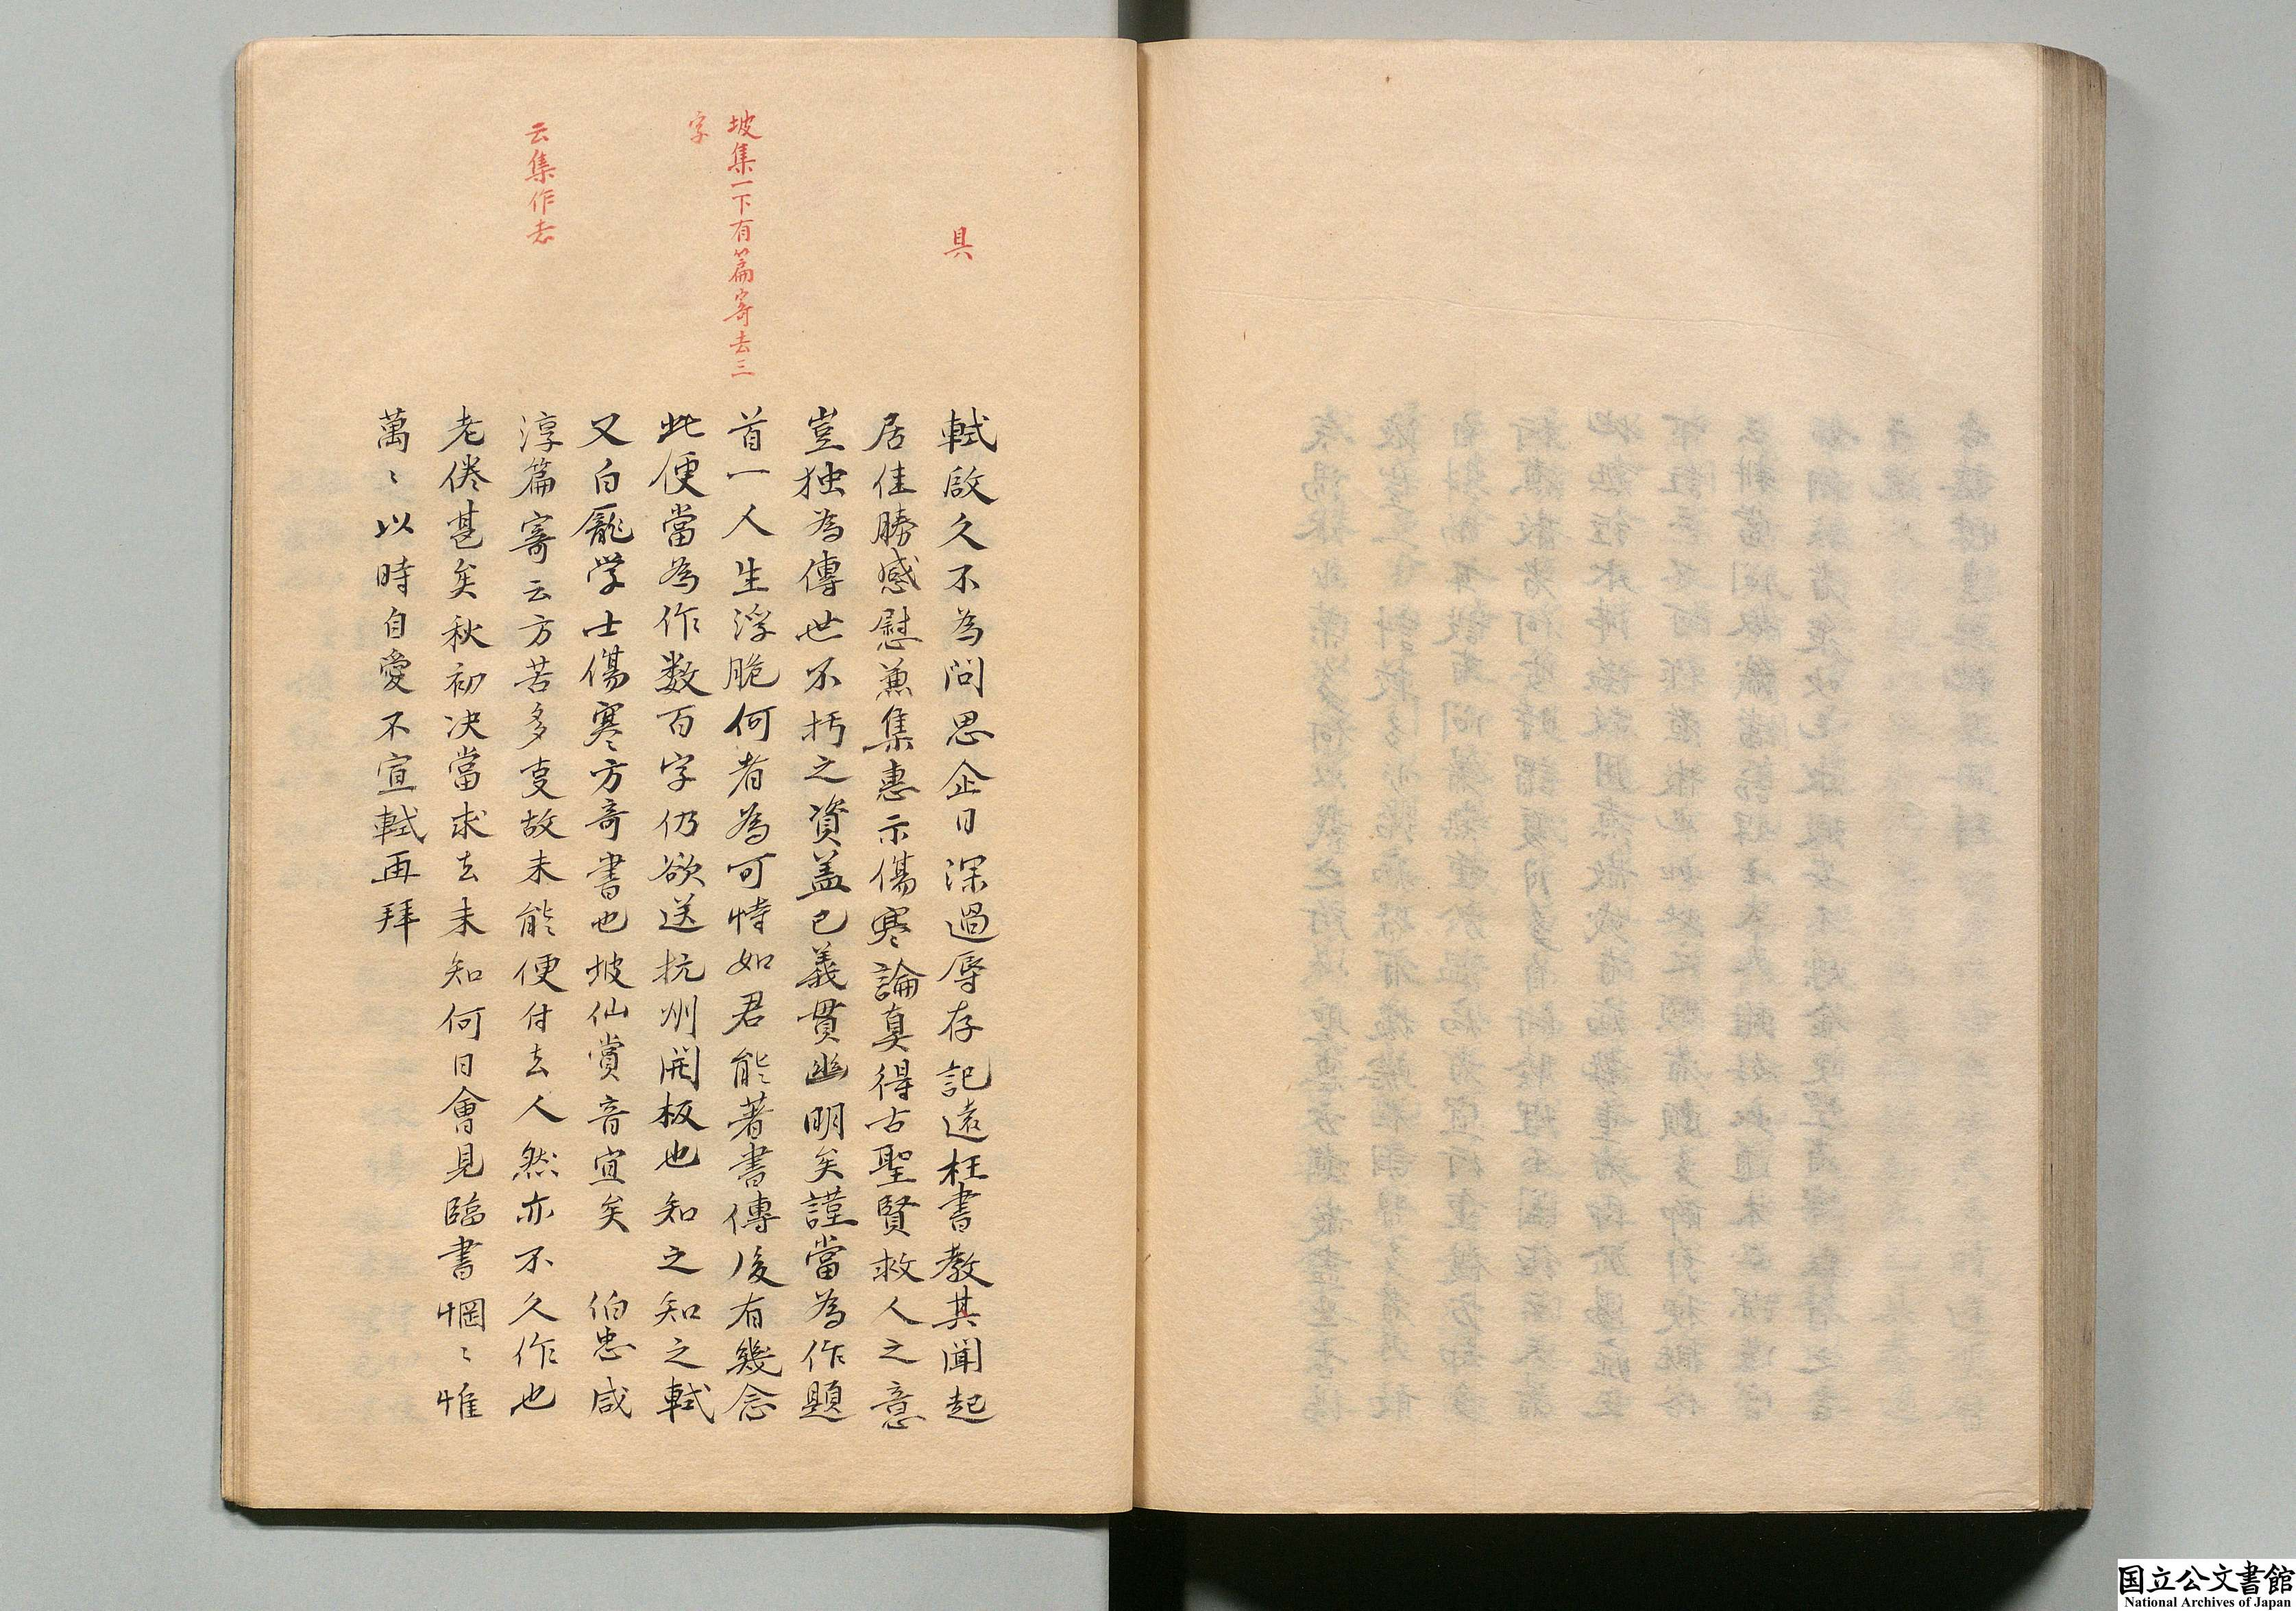 具
坡集一下有篇寄去三
字
云集作志
軾啟久不為問思企日深過辱存記遠枉書教其聞起
居佳勝感慰兼集惠示傷寒論真得古聖賢救人之意
豈独為傳世不朽之資盖已義貫幽明矣謹當為作題
首一人生浮脆何者為可恃如君能著書傳後有幾念
此便當為作数百字仍欲送抗州開板也知之知之軾
又白龐学士傷寒方奇書也坡仙賞音宜矣 伯忠咸
淳篇寄云方苦多叓故未能便付去人然亦不久作也
老倦甚矣秋初决當求去未知何日會見臨書惘〻惟
萬〻以時自愛不宣軾再拜
国立公文書館
National Archives of Japan